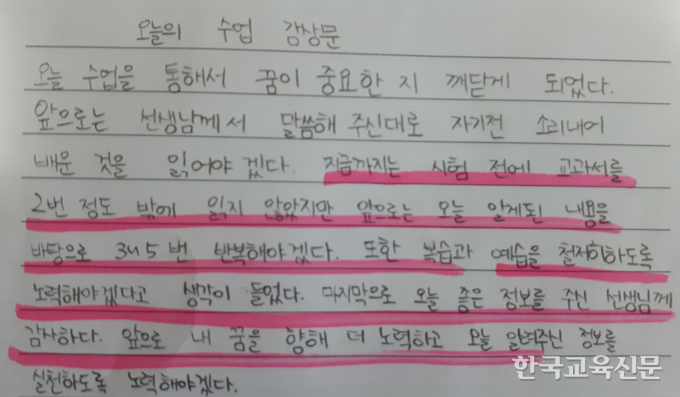 오늘의 수업 감상문
오늘 수업을 통해서 꿈이 중요한 지 깨닫게 되었다.
앞으로는 선생님께서 말씀해 주신대로 자기전 소리내어
배운 것을 읽어야 겠다. 지금까지는 시험 전에 교과서를
2번 정도 밖에 읽지 않았지만 앞으로는 오늘 알게된 내용을
바탕으로 3~5번 반복해야겠다. 또한 복습과 예습을 철저히하도록
노력해야겠다고 생각이 들었다. 마지막으로 오늘 좋은 정보를 주신 선생님께
감사하다. 앞으로 내 꿈을 향해 더 노력하고 오늘 알려주신 정보를
실천하도록 노력해야겠다.
한국교육신문